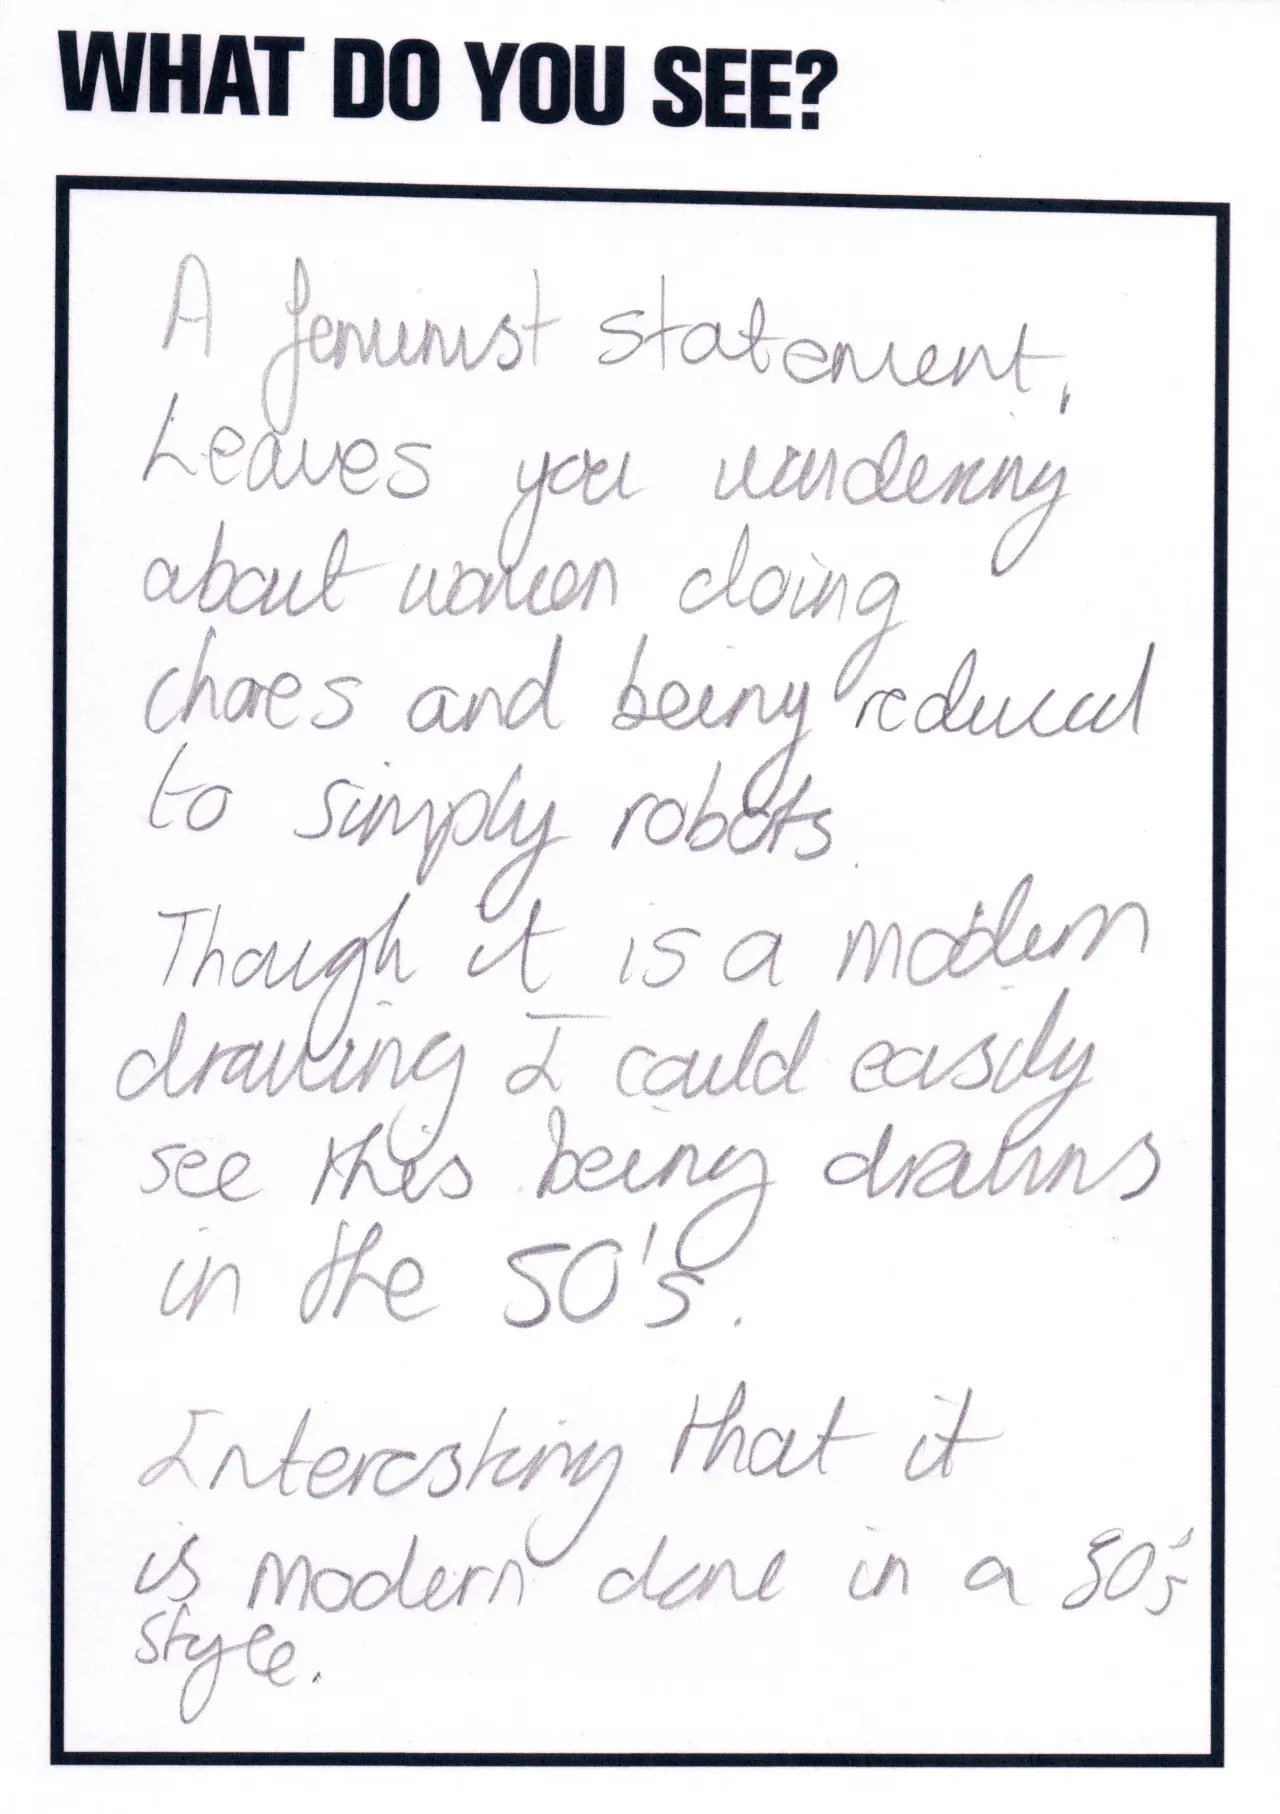 WHAT DO YOU SEE?
A feminist statement,
Leaves you wondering
about women doing
chores and being reduced
to simply robots.
Though it is a modern
drawing I could easily
see this being drawns
in the 50's.
Interesting that it
is modern done in a 50's
style.